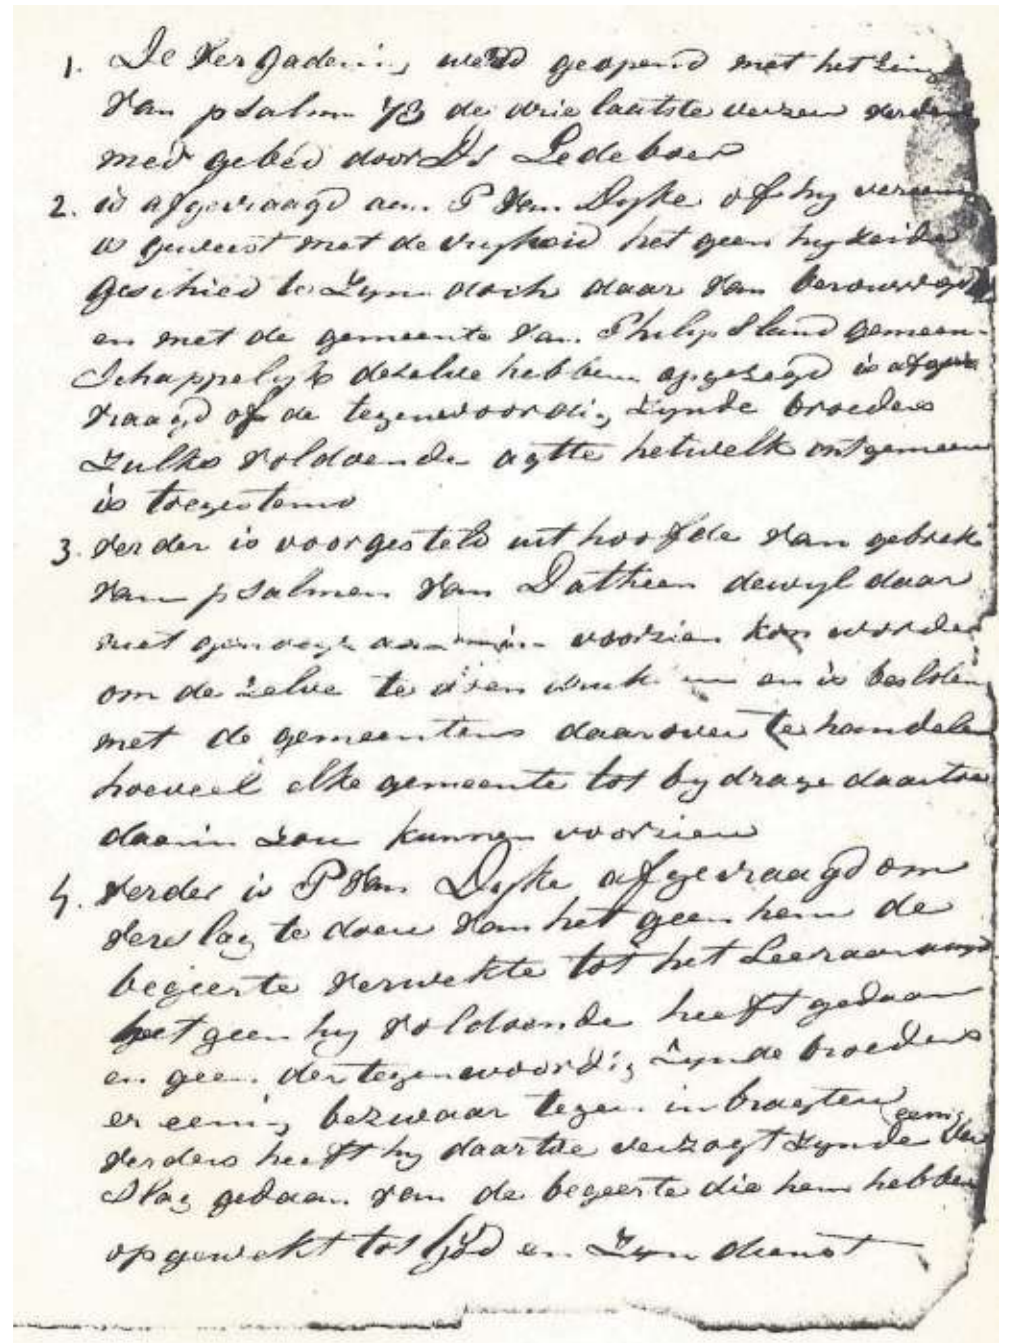 1. De Vergadering werd geopend met het zing
van psalm 73 de drie laatste verzen verder
met gebed door Ds Ledeboer
2. is afgevraagd aan P Van Dyke of hy vereen
is geweest met de vryheid het geen hy zeide
geschied te Zyn doch daar van
en met de gemeente van Philipsland gemeen-
schappelyk dezelve hebben opgezegd is afge
vraagd of de tegenwoordig zynde broeders
zulks voldoende agtte hetwelk
is toegestemd
3. verder is voorgesteld uit hoofde van gebrek
van psalmen van Datheen dewyl daar
niet genoeg voorzien kon worden
om de zelve te doen en is besloten
met de gemeentens daarover te handelen
hoeveel elke gemeente tot bydrage daartoe
daarin zou kunnen voorzien
4. verder is P Van Dyke afgevraagd om
verslag te doen van het geen hem de
begeerte verwekte tot het Leeraarampt
het geen hy voldoende heeft gedaan
en geen der tegenwoordig zynde broeders
er eenig bezwaar tegen inbragten
verders heeft hy daartoe verzogt zynde eenig ver
slag gedaan van de begeerte die hem hebben
opgewekt tot God en Zyn dienst